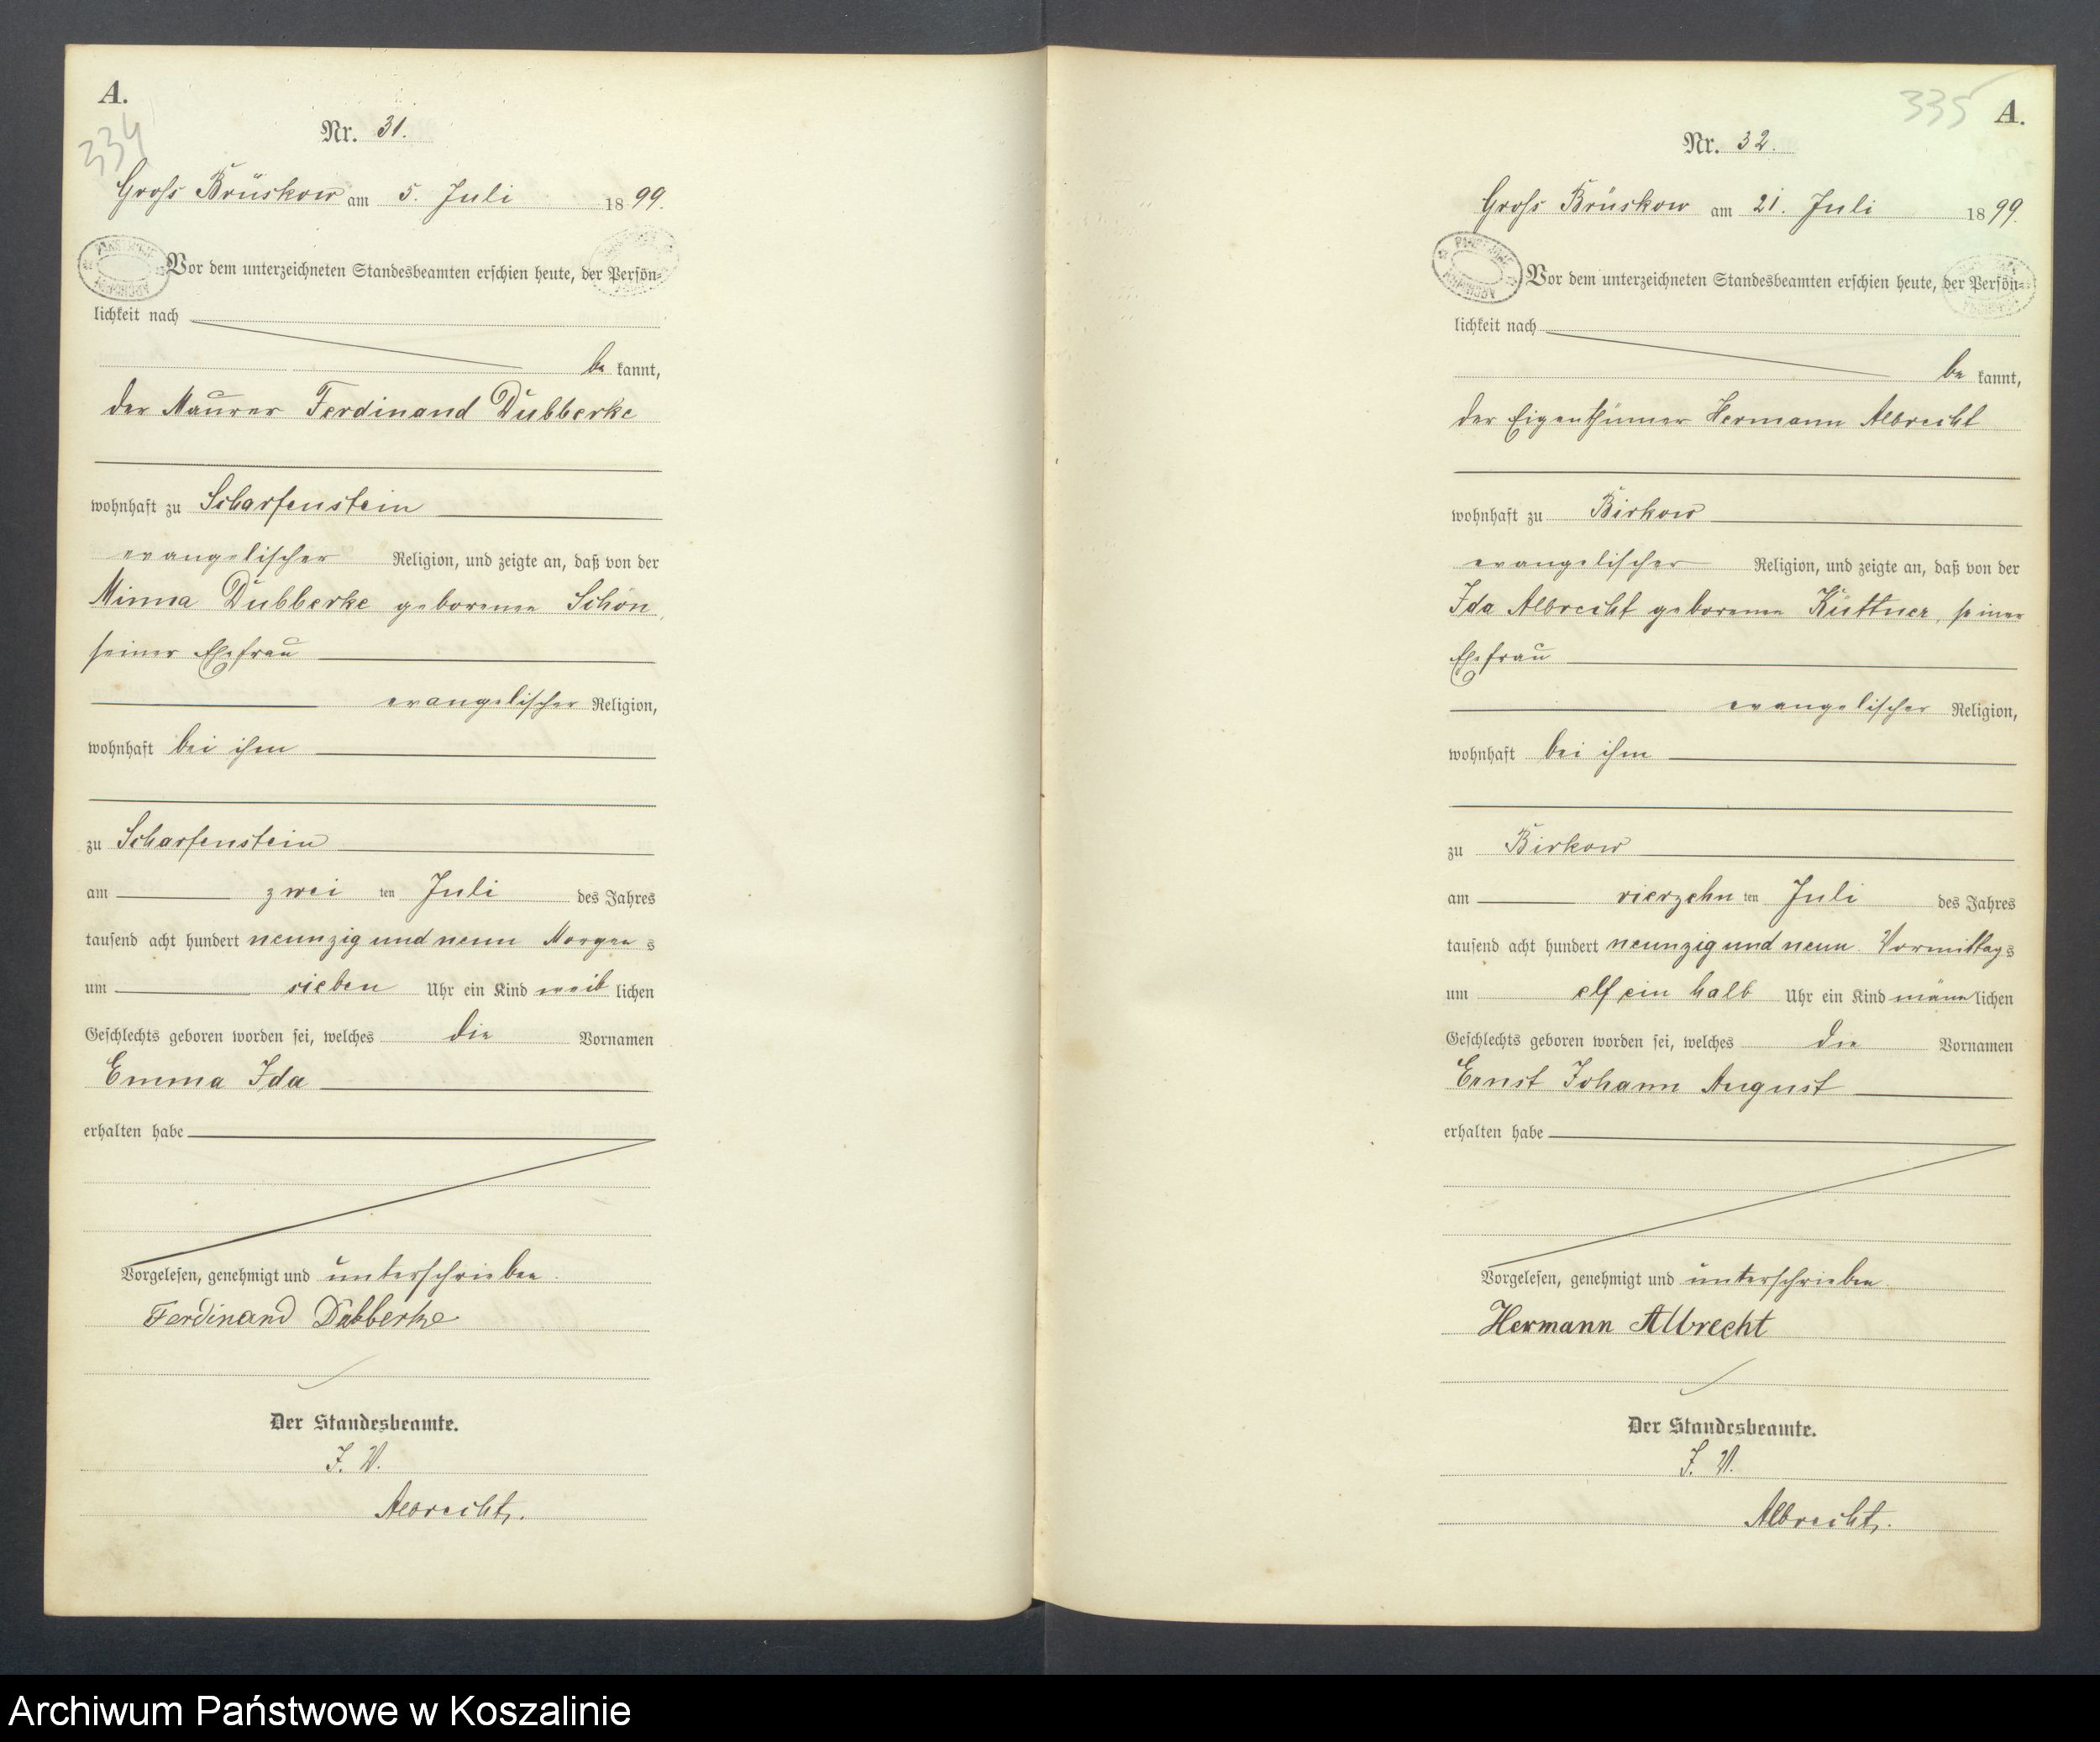 A.
334
Nr. 31.
Gross Brüskow am 5. Juli 1899.
Vor dem unterzeichneten Standesbeamten erschien heute, der Persön-
lichkeit nach
be kannt,
der Maurer Ferdinand Dubberke
wohnhaft zu Scharfenstein
evangelischer Religion, und zeigte an, daß von der
Minna Dubberke geborenen Schön,
seiner Ehefrau
evangelischer Religion,
wohnhaft bei ihm
zu Scharfenstein
am zwei ten Juli des Jahres
tausend acht hundert neunzig und neun Morgens
um sieben Uhr ein Kind weiblichen
Geschlechts geboren worden sei, welches die Vornamen
Emma Ida
erhalten habe
Vorgelesen, genehmigt und unterschrieben.
Ferdinand Dubberke
Der Standesbeamte.
J. V.
Albrecht.
335
A.
Nr. 32.
Gross Brüskow am 21. Juli 1899.
Vor dem unterzeichneten Standesbeamten erschien heute, der Persön-
lichkeit nach
be kannt,
der Eigenthümer Hermann Albrecht
wohnhaft zu Birkow
evangelischer Religion, und zeigte an, daß von der
Ida Albrecht geborenen Küttner, seiner
Ehefrau
evangelischer Religion,
wohnhaft bei ihm
zu Birkow
am vierzehn ten Juli des Jahres
tausend acht hundert neunzig und neun Vormittags
um elf ein halb Uhr ein Kind männlichen
Geschlechts geboren worden sei, welches die Vornamen
Ernst Johann August
erhalten habe
Vorgelesen, genehmigt und unterschrieben.
Hermann Albrecht
Der Standesbeamte.
J. V.
Albrecht.
Archiwum Państwowe w Koszalinie